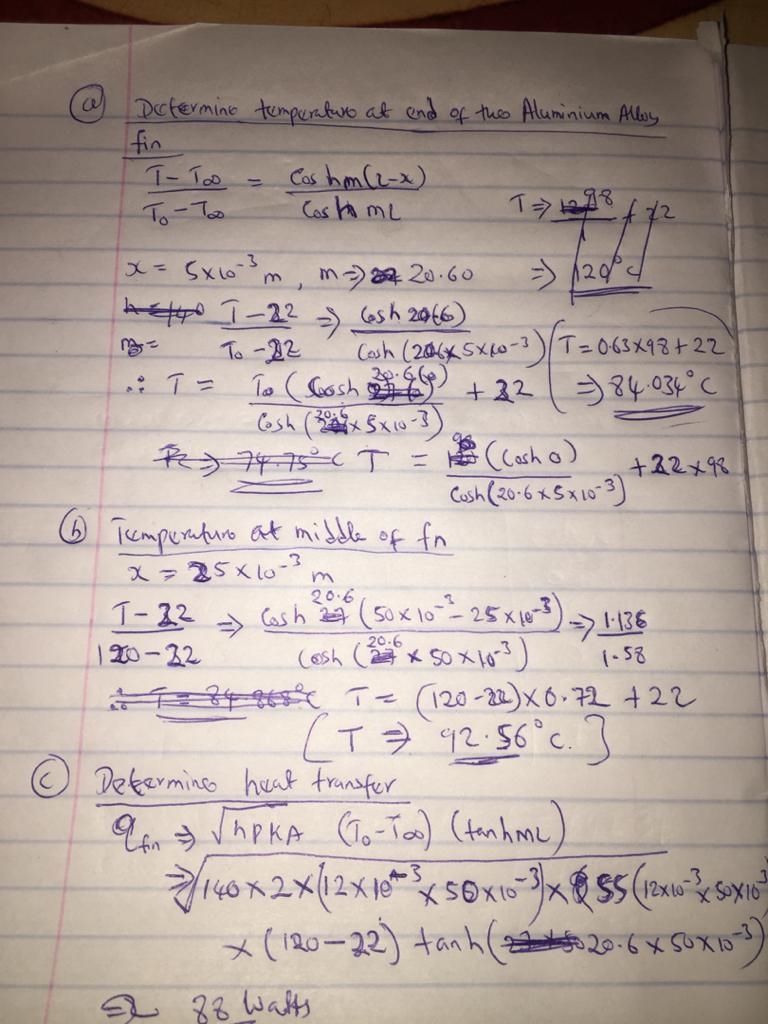 (a) Determine temperature at end of two Aluminium Alloy
fin
T - T∞ / T₀ - T∞ = Cosh m(L-x) / Cosh mL
T ⇒ 98 + 22
⇒ 120°C
x = 5x10⁻³ m, m ⇒ 20.60
T - 22 / T₀ - 22 ⇒ Cosh 20(6) / Cosh (20.6x5x10⁻³)
T = 0.63x98 + 22
⇒ 84.034°C
∴ T = T₀ (Cosh 20.6(0)) / Cosh (20.6 x 5x10⁻³) + 22
⇒ 74.75°C T = 98 (Cosh 0) / Cosh (20.6 x 5x10⁻³) + 22 x 98
(b) Temperature at middle of fn
x = 25x10⁻³ m
T - 22 / 120 - 22 ⇒ Cosh 20.6 (50x10⁻³ - 25x10⁻³) / Cosh (20.6 x 50x10⁻³) ⇒ 1.136 / 1.58
∴ T = 84.868°C T = (120-22)x0.72 + 22
[T ⇒ 92.56°C.]
(c) Determine heat transfer
q fin ⇒ √hPKA (T₀-T∞) (tanh mL)
⇒ √140 x 2 x (12x10⁻³ x 50x10⁻³) x 55 (12x10⁻³ x 50x10⁻³
x (120-22) tanh (20.6 x 50x10⁻³)
⇒ 88 Watts